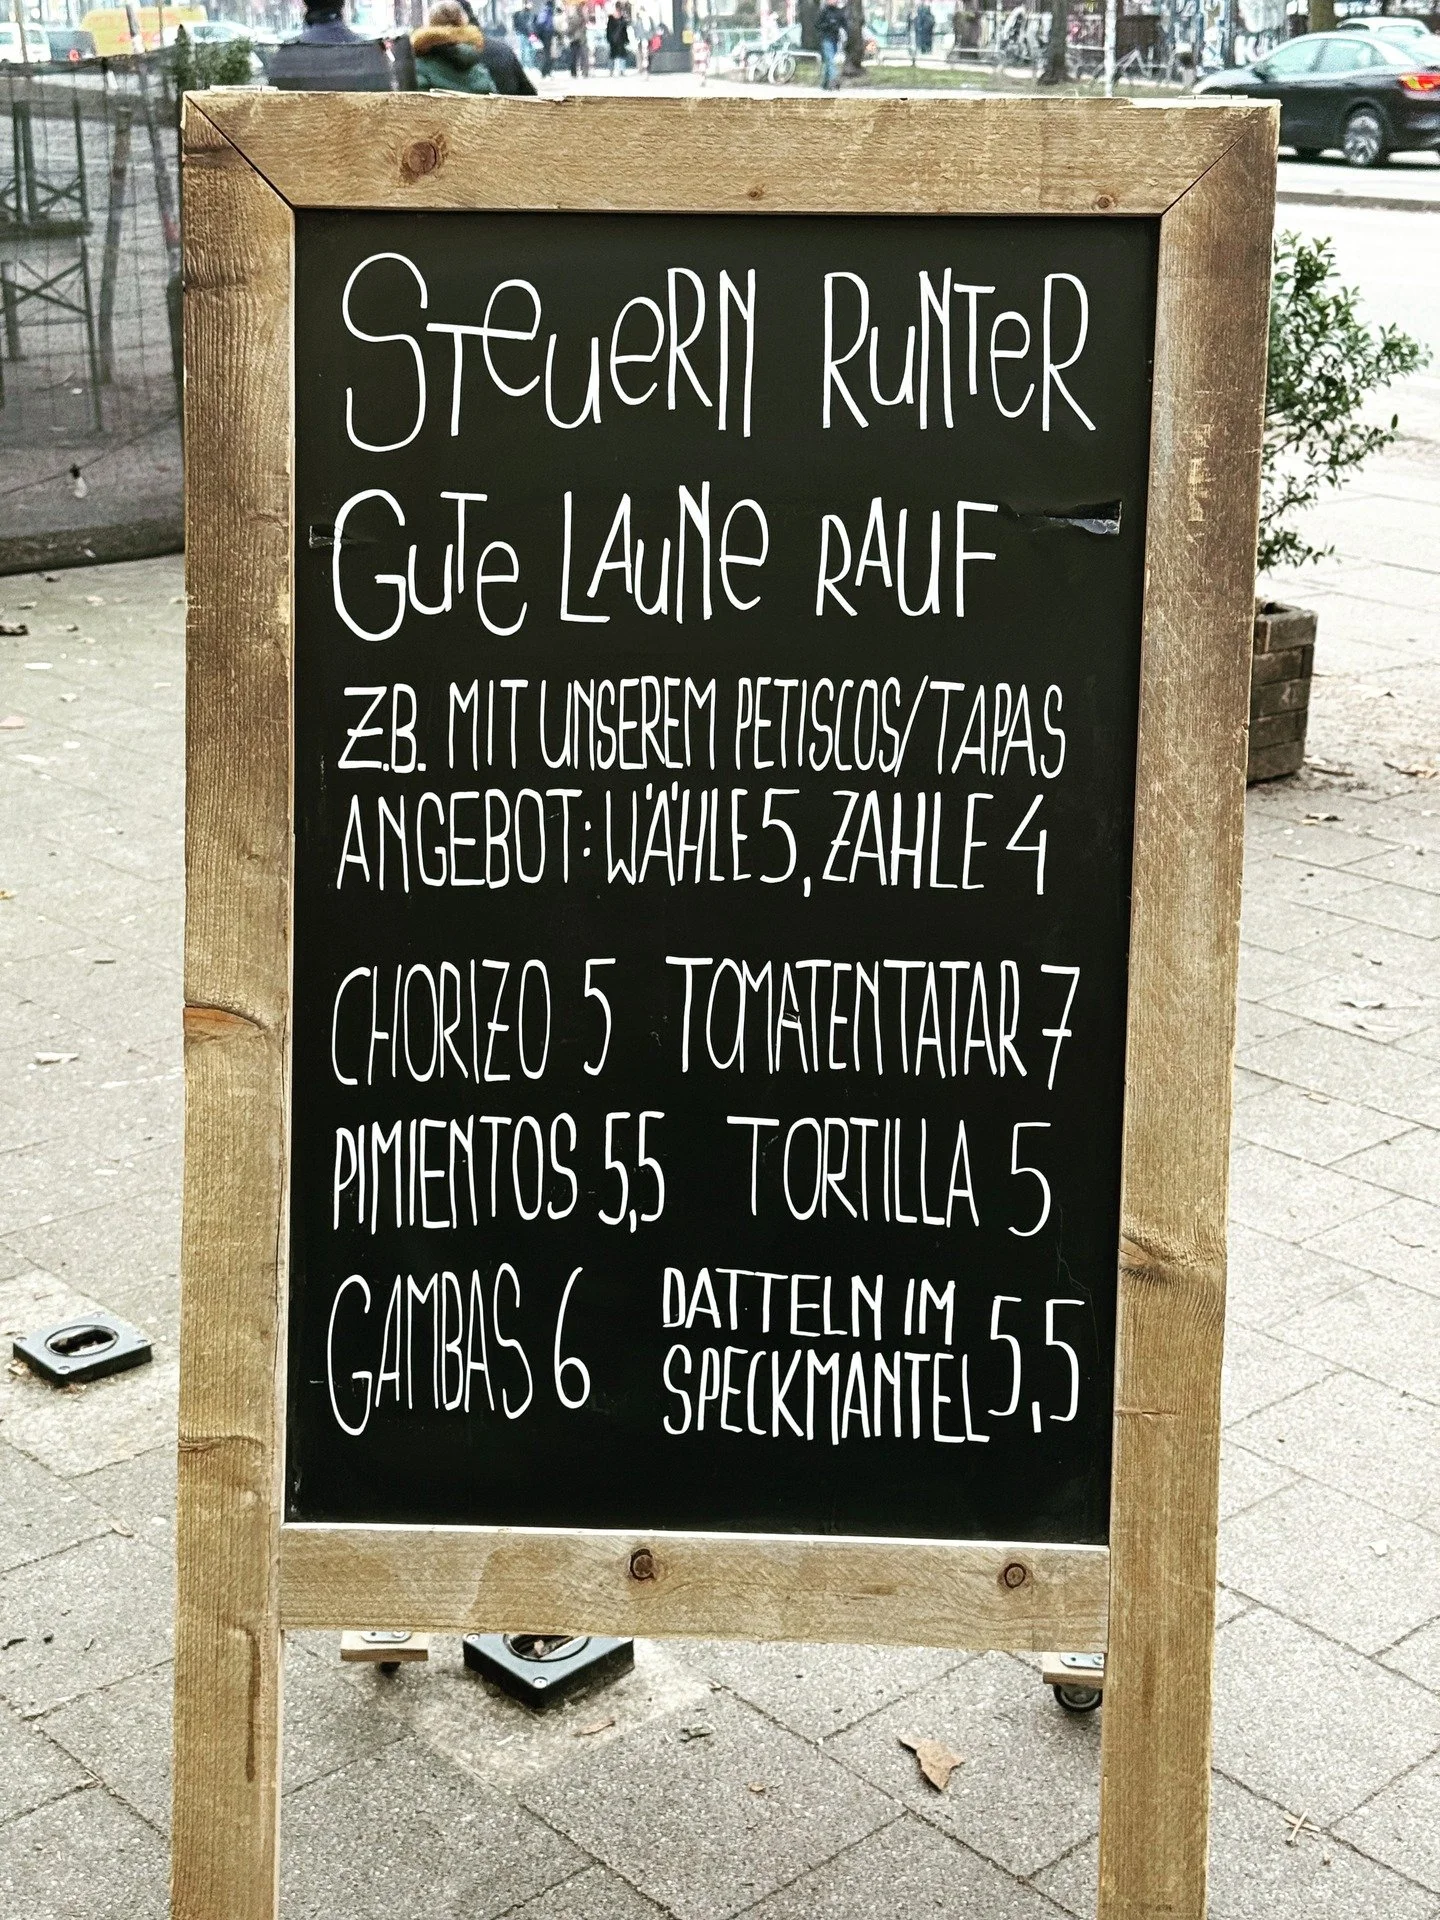 STeueRN RuNTeR
GuTe LAuNe RAuF
Z.B. MIT UNSEREM PETISCOS/TAPAS
ANGEBOT: WÄHLE 5, ZAHLE 4
CHORIZO 5 TOMATENTATAR 7
PIMIENTOS 5,5 TORTILLA 5
GAMBAS 6 DATTELN IM
SPECKMANTEL 5,5